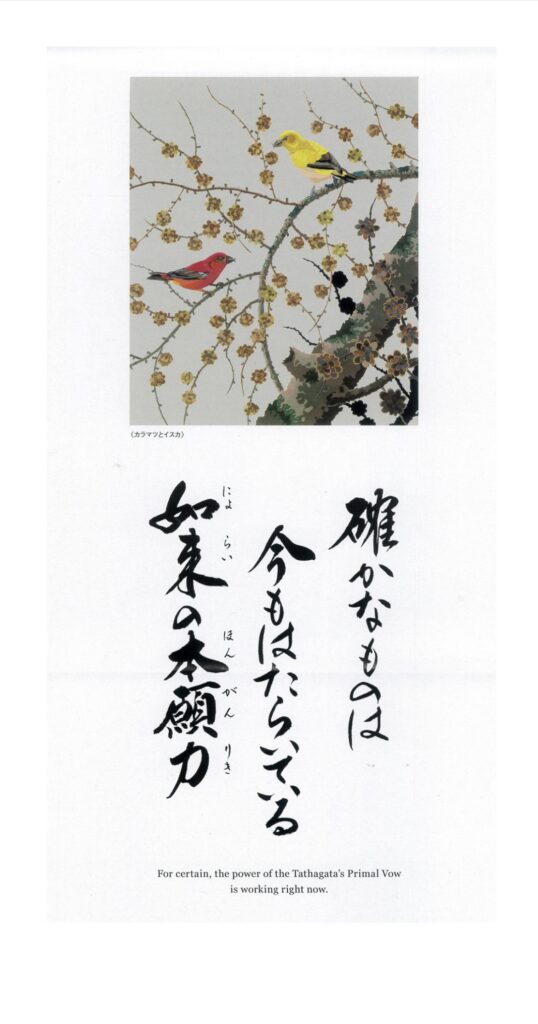 (カラマツとイスカ)
確かなものは
今もはたらいている
如来の本願力
にょ らい ほん がん りき
For certain, the power of the Tathagata's Primal Vow
is working right now.